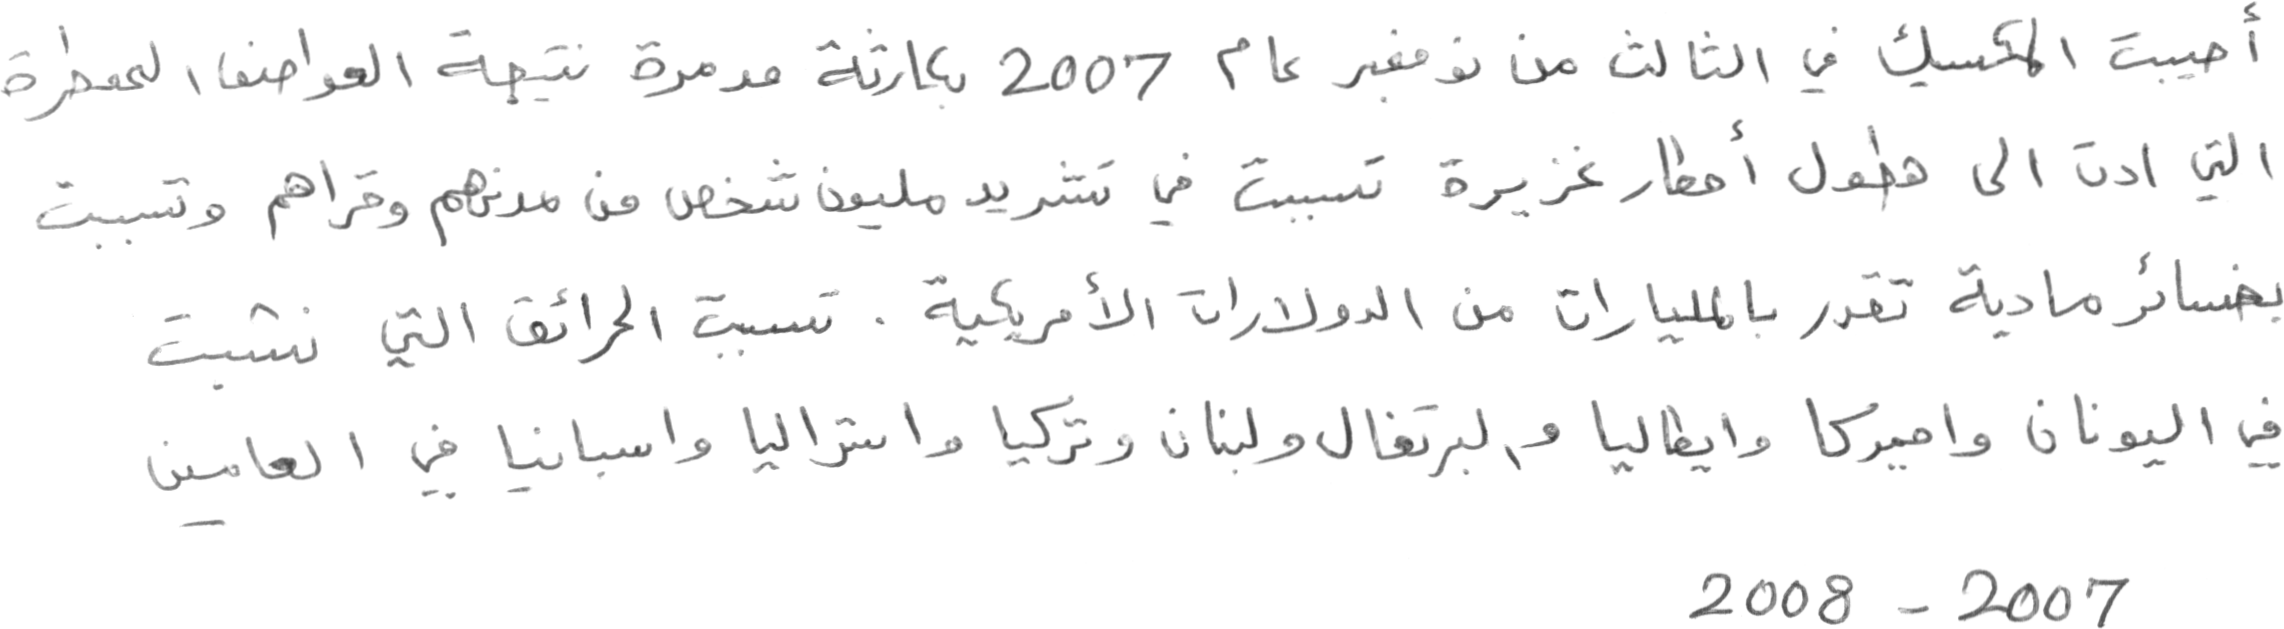 أصيبت المكسيك في الثالث من نوفمبر عام 2007 بكارثة مدمرة نتيجة العواصف الممطرة
التي ادت الى هطول أمطار غزيرة تسببت في تشريد مليون شخص من مدنهم وقراهم وتسببت
بخسائر مادية تقدر بالمليارات من الدولارات الأمريكية . تسببت الحرائق التي نشبت
في اليونان واميركا وايطاليا والبرتغال ولبنان وتركيا واستراليا واسبانيا في العامين
2007 - 2008